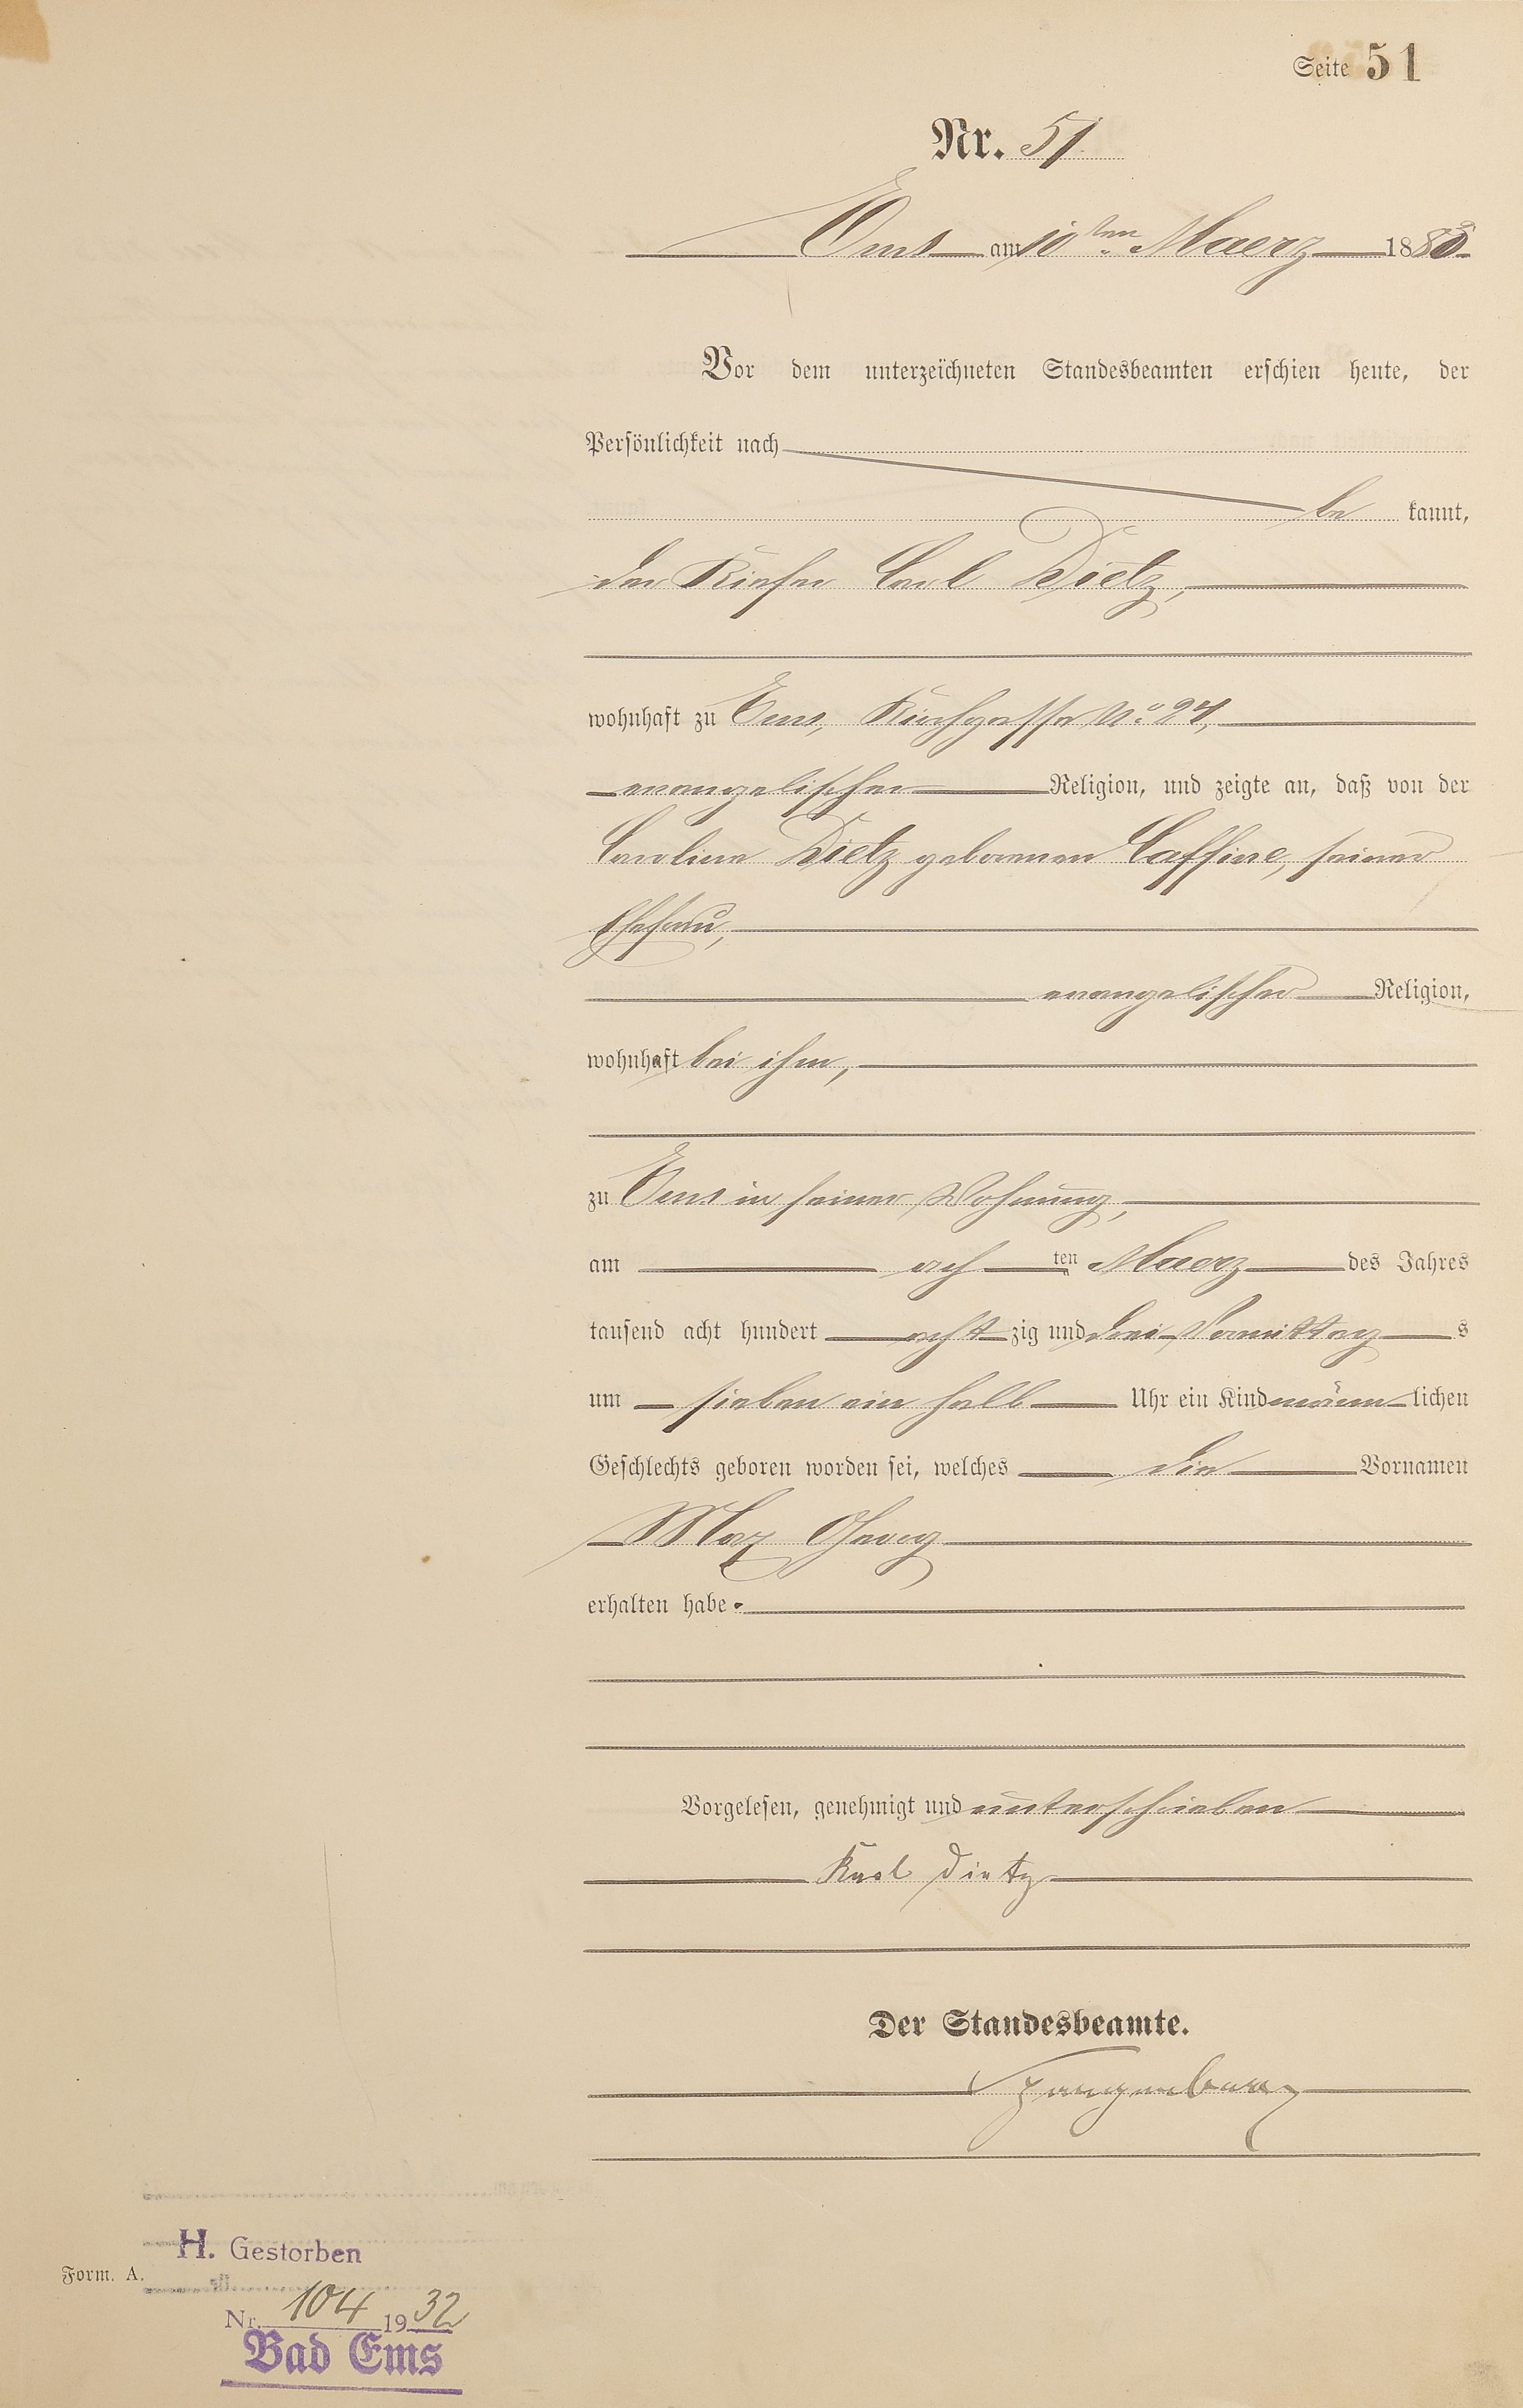 Seite 51
Nr. 51
Ems am 10ten Maerz 1883
Vor dem unterzeichneten Standesbeamten erschien heute, der
Persönlichkeit nach
be kannt,
der Kiefer Carl Dietz,
wohnhaft zu Ems, Kirchgasse No 24,
evangelischer Religion, und zeigte an, daß von der
Caroline Dietz geborenen Caffine, seiner
Ehefrau,
evangelischer Religion,
wohnhaft bei ihm,
zu Ems in seiner Wohnung,
am ach ten Maerz des Jahres
tausend acht hundert acht zig und drei Vormittag s
um sieben ein halb Uhr ein Kind männ lichen
Geschlechts geboren worden sei, welches die Vornamen
Max Georg
erhalten habe.
Vorgelesen, genehmigt und unterschrieben
Karl Dietz
Der Standesbeamte.
Spangenberg
H. Gestorben
Form. A.
Nr. 104 1932
Bad Ems